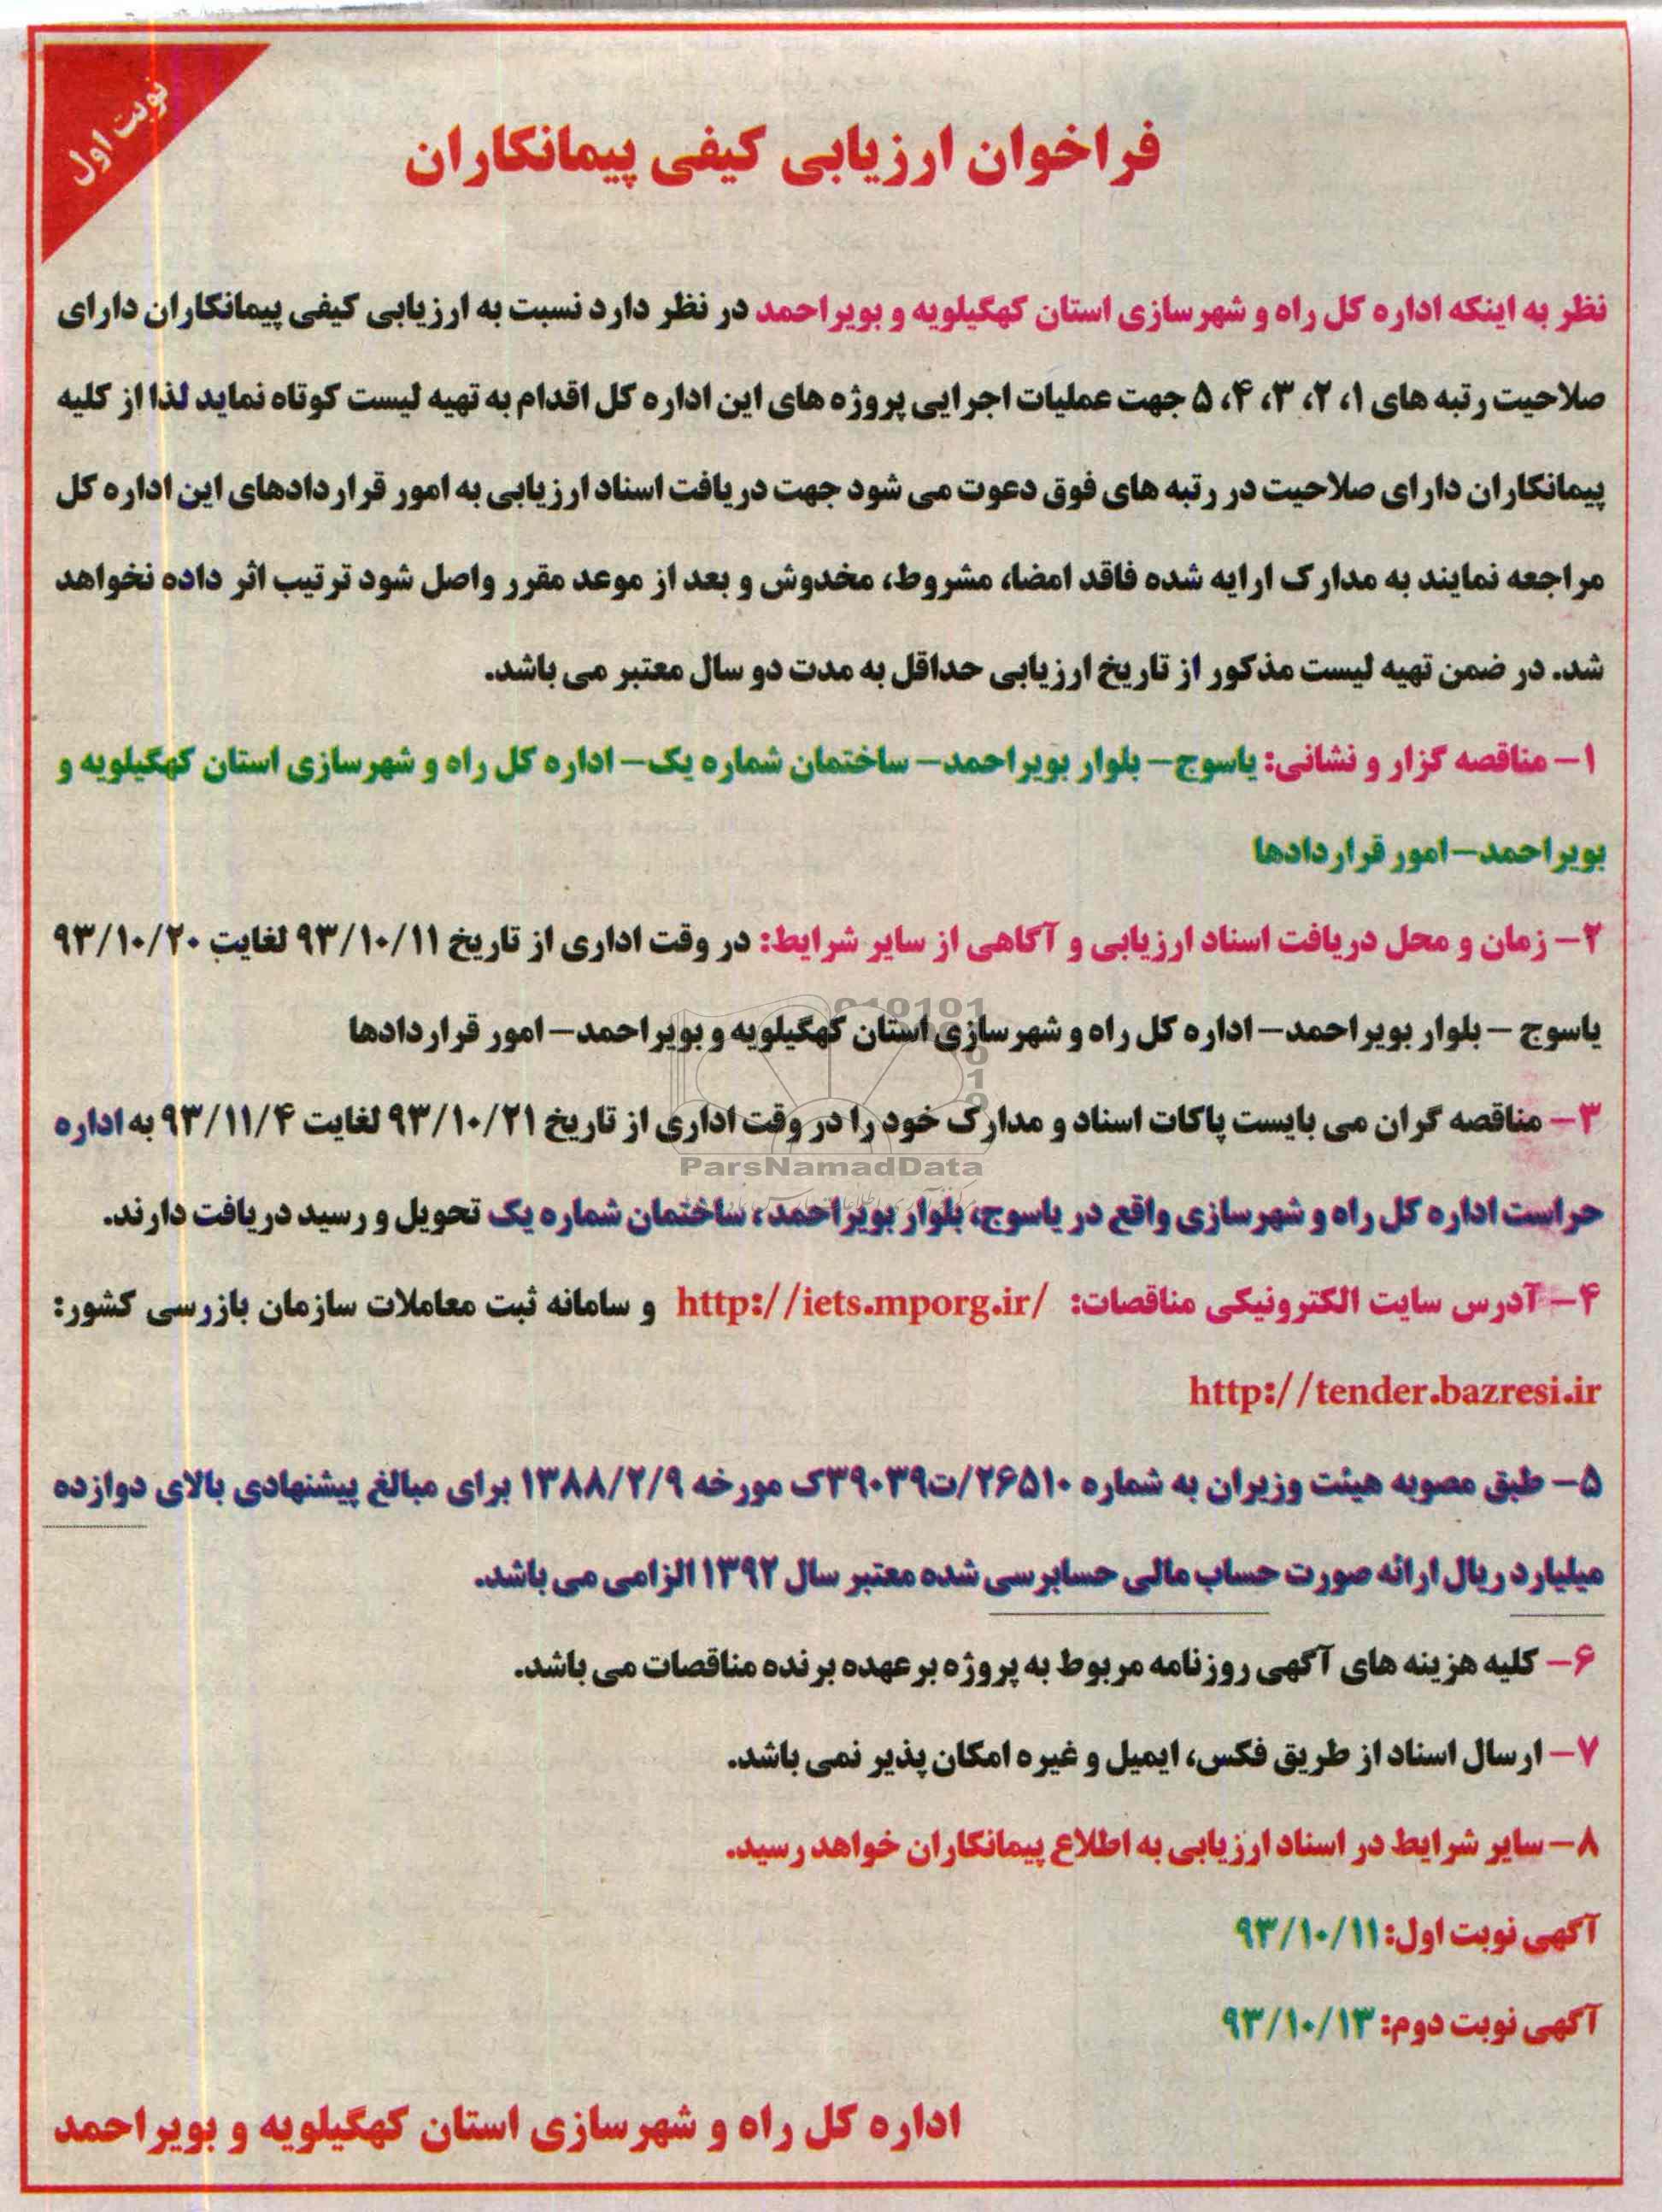 نوبت اول
فراخوان ارزیابی کیفی پیمانکاران
نظر به اینکه اداره کل راه و شهرسازی استان کهگیلویه و بویراحمد در نظر دارد نسبت به ارزیابی کیفی پیمانکاران دارای
صلاحیت رتبه های ۱، ۲، ۳، ۴، ۵ جهت عملیات اجرایی پروژه های این اداره کل اقدام به تهیه لیست کوتاه نماید لذا از کلیه
پیمانکاران دارای صلاحیت در رتبه های فوق دعوت می شود جهت دریافت اسناد ارزیابی به امور قراردادهای این اداره کل
مراجعه نمایند به مدارک ارایه شده فاقد امضا، مشروط، مخدوش و بعد از موعد مقرر واصل شود ترتیب اثر داده نخواهد
شد. در ضمن تهیه لیست مذکور از تاریخ ارزیابی حداقل به مدت دو سال معتبر می باشد.
۱- مناقصه گزار و نشانی: یاسوج- بلوار بویراحمد- ساختمان شماره یک- اداره کل راه و شهرسازی استان کهگیلویه و
بویراحمد- امور قراردادها
۲- زمان و محل دریافت اسناد ارزیابی و آگاهی از سایر شرایط: در وقت اداری از تاریخ ۹۳/۱۰/۱۱ لغایت ۹۳/۱۰/۲۰
یاسوج - بلوار بویراحمد- اداره کل راه و شهرسازی استان کهگیلویه و بویراحمد- امور قراردادها
۳- مناقصه گران می بایست پاکات اسناد و مدارک خود را در وقت اداری از تاریخ ۹۳/۱۰/۲۱ لغایت ۹۳/۱۱/۴ به اداره
ParsNamadData
حراست اداره کل راه و شهرسازی واقع در یاسوج، بلوار بویراحمد، ساختمان شماره یک تحویل و رسید دریافت دارند.
۴- آدرس سایت الکترونیکی مناقصات: http://iets.mporg.ir/ و سامانه ثبت معاملات سازمان بازرسی کشور:
http://tender.bazresi.ir
۵- طبق مصوبه هیئت وزیران به شماره ۲۶۵۱۰/ت۳۹۰۳۹ک مورخه ۱۳۸۸/۲/۹ برای مبالغ پیشنهادی بالای دوازده
میلیارد ریال ارائه صورت حساب مالی حسابرسی شده معتبر سال ۱۳۹۲ الزامی می باشد.
۶- کلیه هزینه های آگهی روزنامه مربوط به پروژه بر عهده برنده مناقصات می باشد.
۷- ارسال اسناد از طریق فکس، ایمیل و غیره امکان پذیر نمی باشد.
۸- سایر شرایط در اسناد ارزیابی به اطلاع پیمانکاران خواهد رسید.
آگهی نوبت اول: ۹۳/۱۰/۱۱
آگهی نوبت دوم: ۹۳/۱۰/۱۳
اداره کل راه و شهرسازی استان کهگیلویه و بویراحمد